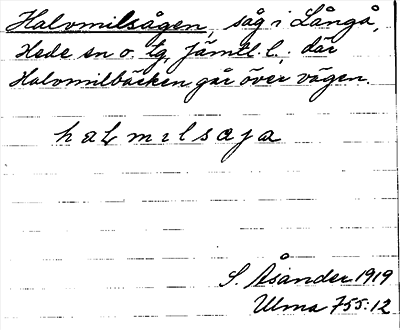 Halvmilsågen, såg i Långå,
Hede sn o. tg, Jämtl. l., där
Halvmilbäcken går över vägen.
halmılsaja
S. Åsander 1919
Ulma 755:12